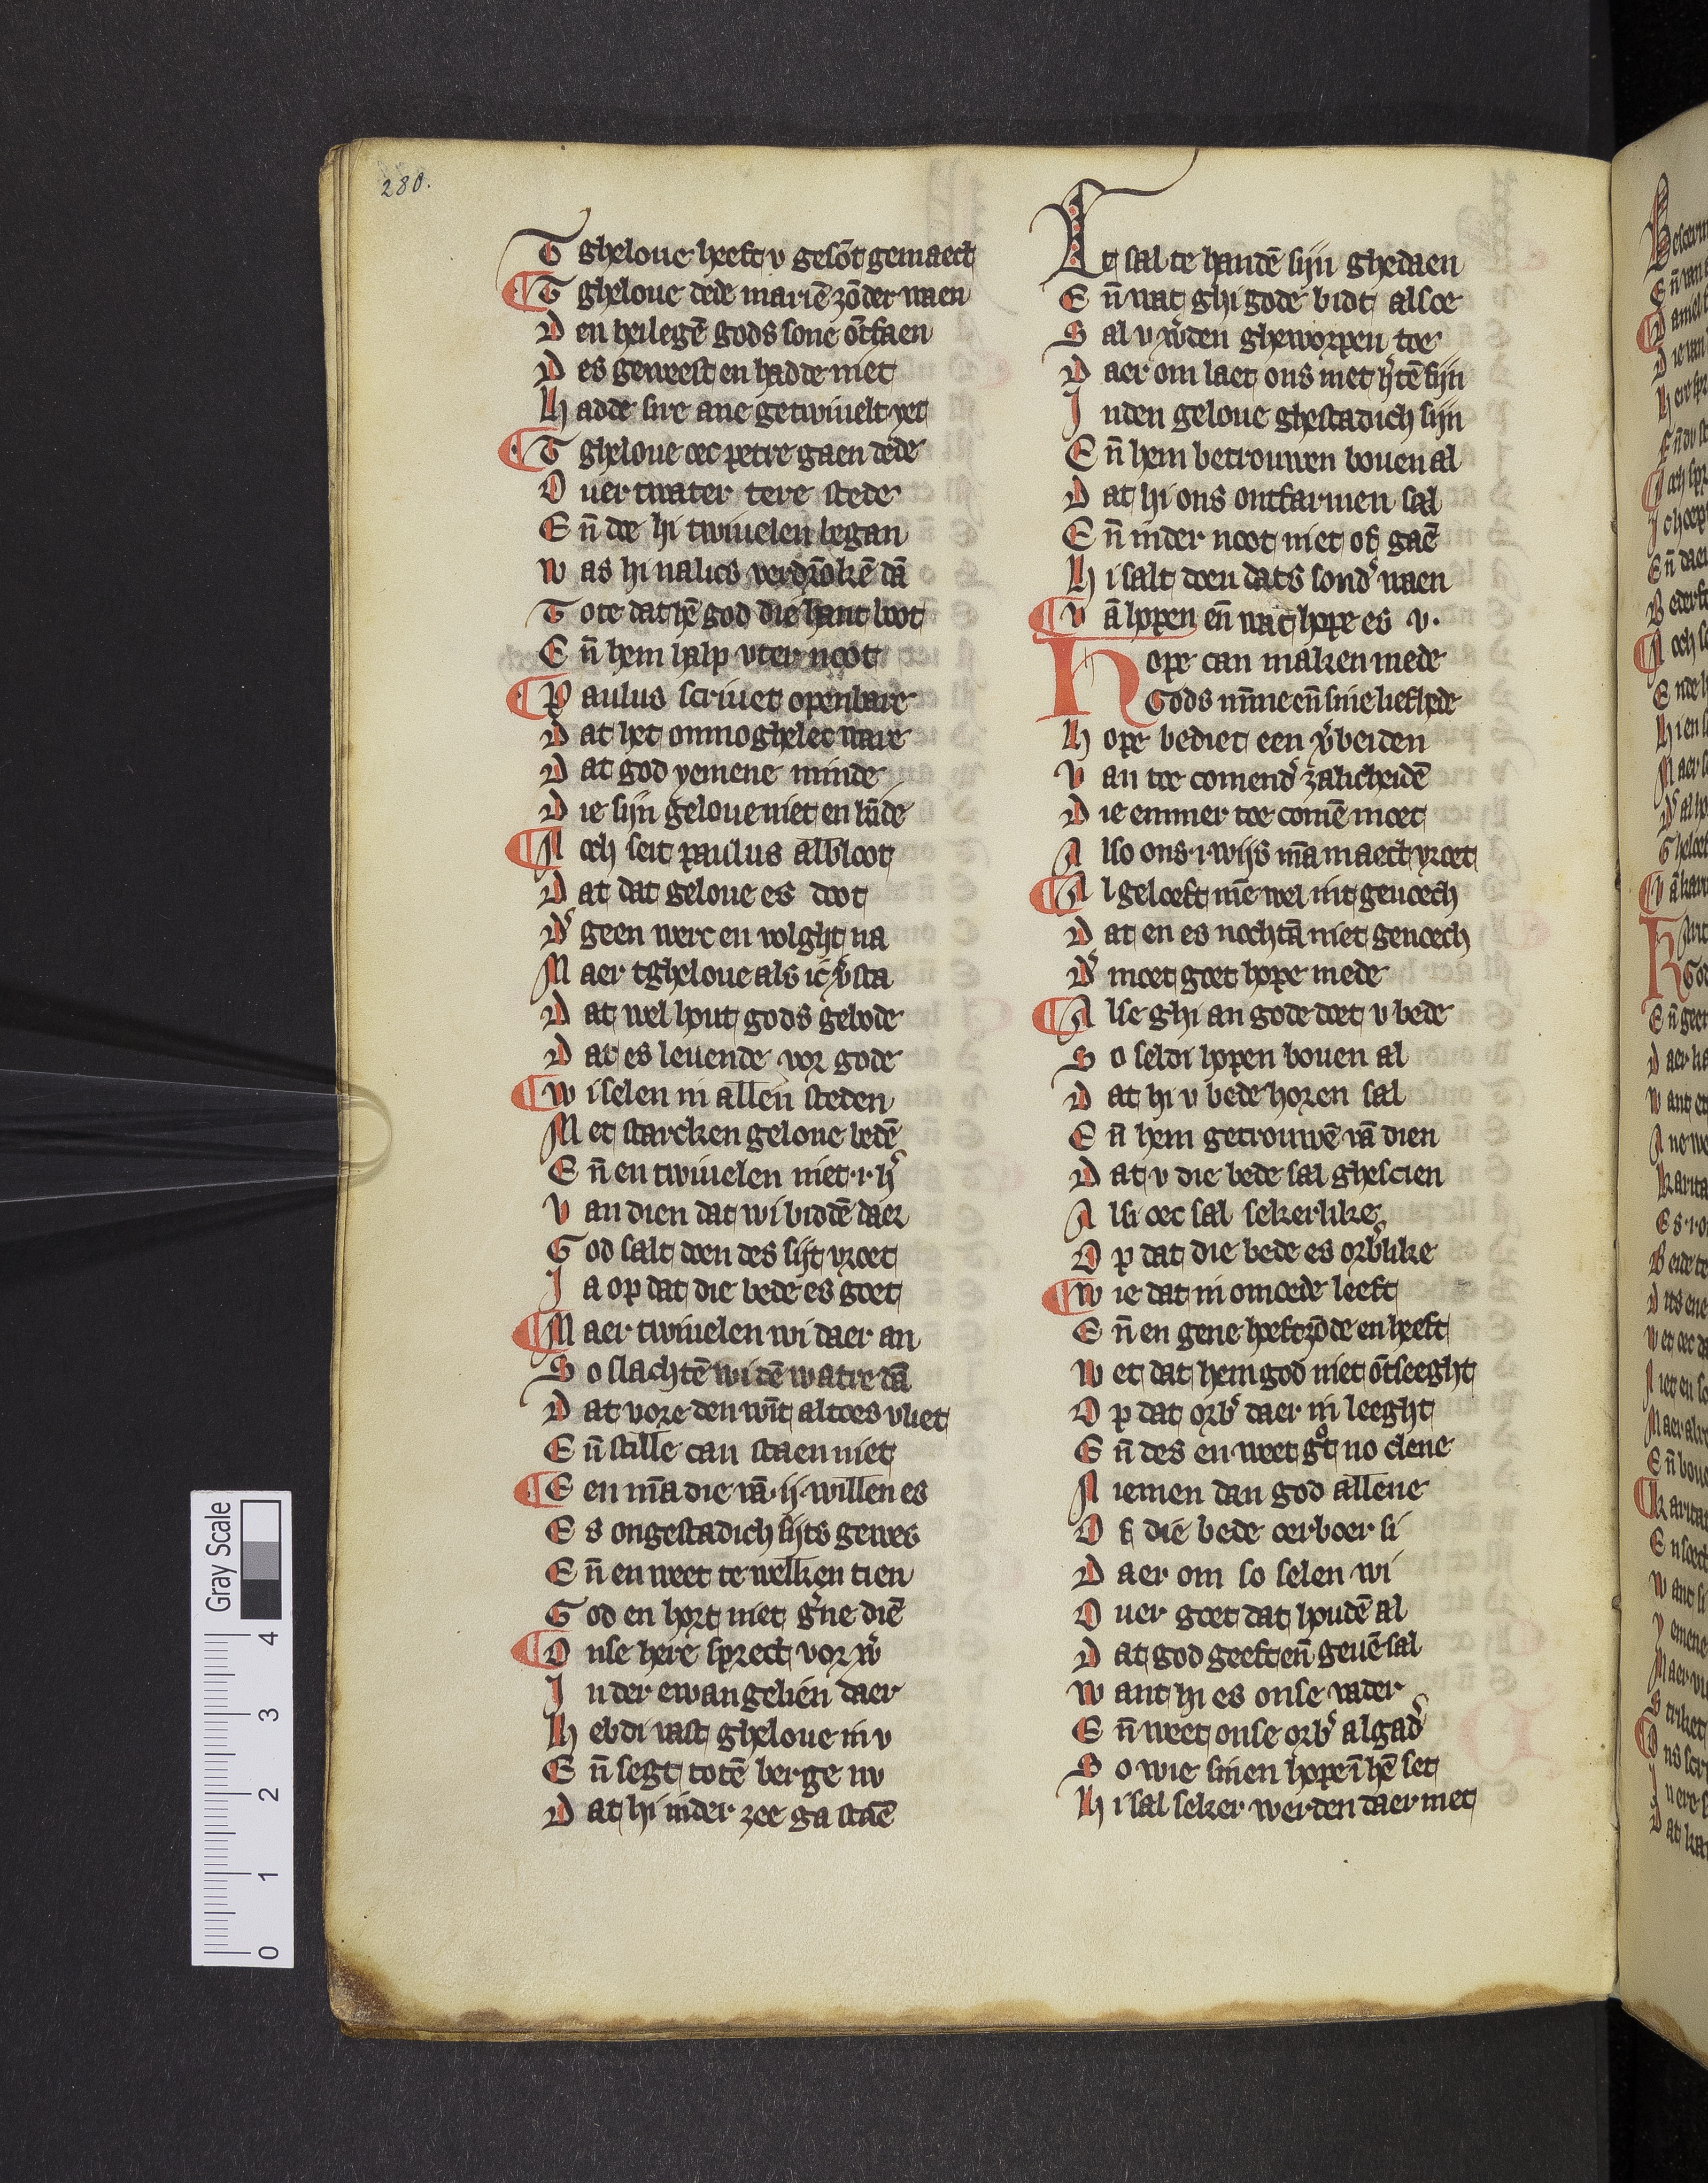 280.
T gheloue heeft v gesōt gemaect
T gheloue dede mariē zōder waen
D en heilegē gods sone ōtfaen
D es geweest en hadde niet
H adde sire ane getwiuelt yet
T gheloue oec petre gaen dede
O uer twater tere stede
E n̄ doe hi twiuelen began
W as hi nalics verdrōkē dā
T ote dat hē god die hant boot
E n̄ hem halp vter noot
P aulus scriuet openbare
D at het onmoghelec ware
D at god yemene minde
D ie sijn geloue niet en kīde
N och seit paulus albloot
D at dat geloue es doot
D͛ geen werc en volght na
M aer tgheloue als ic v͛sta
D at wel hout gods gebode
D at es leuende vor gode
W i selen in allen steden
M et starcken geloue bedē
E n̄ en twiuelen niet .i. h͛
V an dien dat wi biddē daer
G od salt doen des sijt vroet
J a op dat die bede es goet
M aer twiuelen wi daer an
S o slachtē wi dē watre dā
D at vore den wīt altoes vliet
E n̄ stille can staen niet
E en mā die vā .ij. willen es
E s ongestadich sijts gewes
E n̄ en weet te welken tien
G od en hort niet g͛ne diē
O nse here sprect vor w͛
J n der ewangelien daer
H ebdi vast gheloue in v
E n̄ segt totē berge nv
D at hi inder zee ga staē
H et sal te handē sijn ghedaen
E n̄ wat ghi gode bidt alsoe
S al v w͛den gheworpen toe
D aer om laet ons met h͛tē fijn
J nden geloue ghestadich sijn
E n̄ hem betrouwen bouen al
D at hi ons ontfarmen sal
E n̄ inder noot niet of gaē
H i salt doen dats sond͛ waen
V ā hopen en̄ wat hope es v.
Hope can maken mede
Gods mīne en̄ sine liefhede
H ope bediet een v͛beiden
V an toe comend͛ zalicheidē
D ie emmer toe comē moet
A lso ons .i. wijs mā maect vroet
A l geloeft mē wel mit genoech
D at en es nochtā niet genoech
D͛ moet goet hope mede
A lse ghi an gode doet v bede
S o seldi hopen bouen al
D at hi v bede horen sal
E n̄ hem getrouwē vā dien
D at v die bede sal ghescien
A lsi oec sal sekerlike
O p dat die bede es orb͛like
W ie dat in omoede leeft
E n̄ en gene heeftzōde en heeft
W et dat hem god niet ōtseeght
O p dat orb͛ daer in leeght
E n̄ des en weet gͦt no clene
N iemen dan god allene
O f die bede oerboer si
D aer om so selen wi
O uer goet dat houdē al
D at god geeft en̄ geuē sal
W ant hi es onse vader
E n̄ weet onse orb͛ algad͛
S o wie sinen hope ī hē set
H i sal seker werden daer met
Gray Scale
4
3
2
1
0